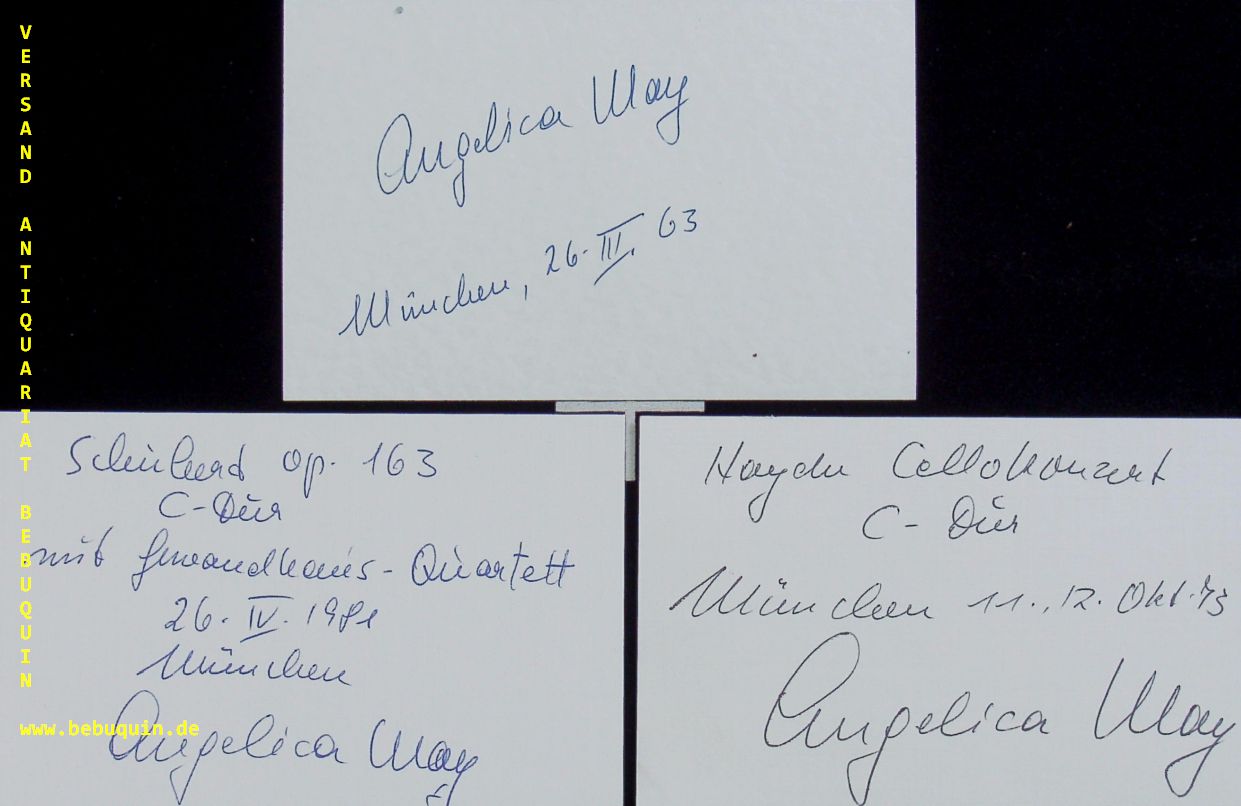 VERSAND ANTIQUARIAT BEBUQUIN
www.bebuquin.de
Angelica May
München, 26. III. 63
Schubert op. 163
C-Dur
mit Gewandhaus-Quartett
26. IV. 1981
München
Angelica May
Haydn Cellokonzert
C-Dur
München 11., 12. Okt. 73
Angelica May